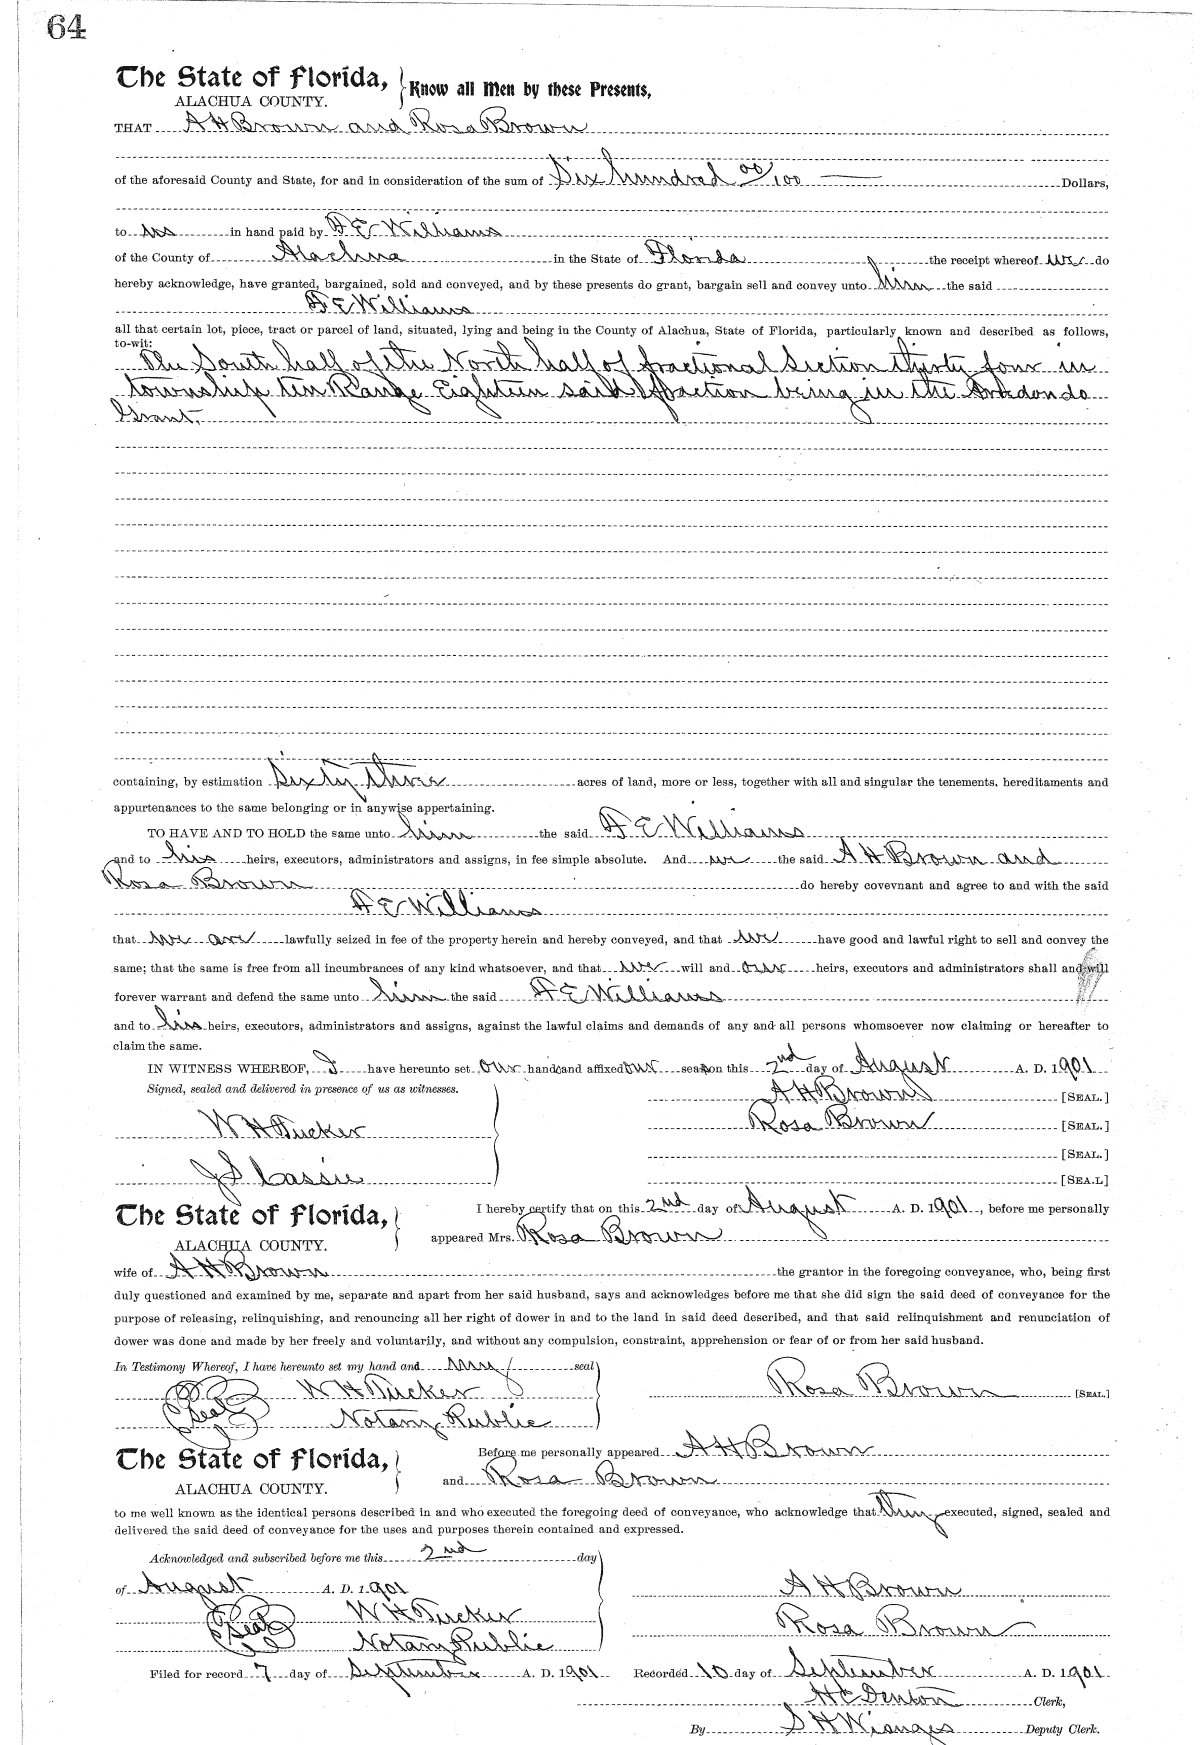 64
The State of Florida, Know all Men by these Presents,
ALACHUA COUNTY.
THAT A H Brown and Rosa Brown
of the aforesaid County and State, for and in consideration of the sum of Six hundred 00/100 Dollars,
to us in hand paid by A E Williams
of the County of Alachua in the State of Florida the receipt whereof we do
hereby acknowledge, have granted, bargained, sold and conveyed, and by these presents do grant, bargain sell and convey unto him the said
A E Williams
all that certain lot, piece, tract or parcel of land, situated, lying and being in the County of Alachua, State of Florida, particularly known and described as follows,
to-wit:
The South half of the North half of fractional Section thirty four in
township ten Range Eighteen said fraction being in the Arredondo
Grant.
containing, by estimation Sixty three acres of land, more or less, together with all and singular the tenements, hereditaments and
appurtenances to the same belonging or in anywise appertaining.
TO HAVE AND TO HOLD the same unto him the said A E Williams
and to his heirs, executors, administrators and assigns, in fee simple absolute. And we the said A H Brown and
Rosa Brown do hereby covevnant and agree to and with the said
A E Williams
that we are lawfully seized in fee of the property herein and hereby conveyed, and that we have good and lawful right to sell and convey the
same; that the same is free from all incumbrances of any kind whatsoever, and that we will and our heirs, executors and administrators shall and will
forever warrant and defend the same unto him the said A E Williams
and to his heirs, executors, administrators and assigns, against the lawful claims and demands of any and all persons whomsoever now claiming or hereafter to
claim the same.
IN WITNESS WHEREOF, I have hereunto set our hands and affixed our seals on this 2nd day of August A. D. 1901
Signed, sealed and delivered in presence of us as witnesses. A H Brown [SEAL.]
W H Tucker Rosa Brown [SEAL.]
[SEAL.]
J S Cassie [SEA.L]
The State of Florida, I hereby certify that on this 2nd day of August A. D. 1901, before me personally
ALACHUA COUNTY. appeared Mrs. Rosa Brown
wife of A H Brown the grantor in the foregoing conveyance, who, being first
duly questioned and examined by me, separate and apart from her said husband, says and acknowledges before me that she did sign the said deed of conveyance for the
purpose of releasing, relinquishing, and renouncing all her right of dower in and to the land in said deed described, and that said relinquishment and renunciation of
dower was done and made by her freely and voluntarily, and without any compulsion, constraint, apprehension or fear of or from her said husband.
In Testimony Whereof, I have hereunto set my hand and my seal
Seal W H Tucker Rosa Brown [SEAL.]
Notary Public
The State of Florida, Before me personally appeared A H Brown
ALACHUA COUNTY. and Rosa Brown
to me well known as the identical persons described in and who executed the foregoing deed of conveyance, who acknowledge that they executed, signed, sealed and
delivered the said deed of conveyance for the uses and purposes therein contained and expressed.
Acknowledged and subscribed before me this 2nd day
of August A. D. 1901 A H Brown
Seal W H Tucker Rosa Brown
Notary Public
Filed for record 7 day of September A. D. 1901 Recorded 10 day of September A. D. 1901
H C Denton Clerk,
By S H Wienges Deputy Clerk.